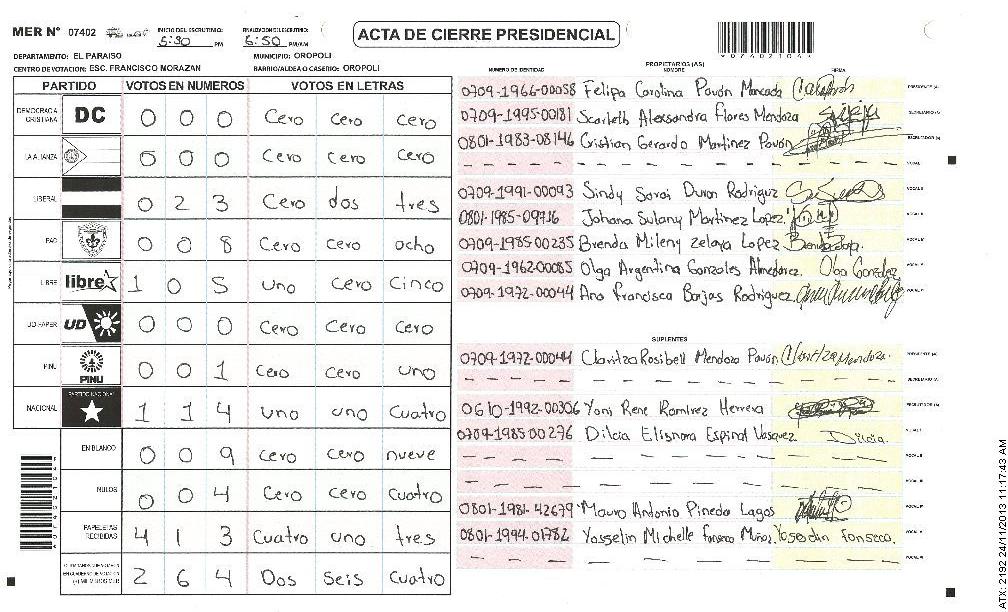 MER Nº 07402 INICIO DEL ESCRUTINIO: 5:30 PM FINALIZACION ESCRUTINIO: 6:50 PM/AM
ACTA DE CIERRE PRESIDENCIAL
*07402104*
DEPARTAMENTO: EL PARAISO MUNICIPIO: OROPOLI
CENTRO DE VOTACION: ESC. FRANCISCO MORAZAN BARRIO/ALDEA O CASERIO: OROPOLI
PARTIDO VOTOS EN NUMEROS VOTOS EN LETRAS
DEMOCRACIA CRISTIANA DC 0 0 0 Cero cero cero
LA ALIANZA 0 0 0 Cero cero cero
LIBERAL 0 2 3 Cero dos tres
PAC 0 0 8 Cero cero ocho
LIBRE libre 1 0 5 uno cero cinco
UD-FAPER UD 0 0 0 Cero cero Cero
PINU PINU 0 0 1 Cero cero uno
NACIONAL PARTIDO NACIONAL 1 1 4 uno uno Cuatro
EN BLANCO 0 0 9 cero cero nueve
NULOS 0 0 4 Cero cero Cuatro
PAPELETAS RECIBIDAS 4 1 3 Cuatro uno tres
2 6 4 Dos seis cuatro
PROPIETARIOS (AS)
NUMERO DE IDENTIDAD NOMBRE FIRMA
0709-1966-00058 Felipa Carolina Pavón Moncada PRESIDENTE (A)
0709-1995-00181 Scarleth Alessandra Flores Mendoza SECRETARIO (A)
0801-1983-08146 Cristian Gerardo Martinez Pavón ESCRUTADOR (A)
VOCAL I
0709-1991-00093 Sindy Sarai Duron Rodriguz VOCAL II
0801-1985-09716 Johana Sulany Martinez Lopez
0709-1985-00235 Brenda Mileny Zelaya Lopez
0709-1962-00085 Olga Argentina Gonzales Almedarez Olga Gonzalez
0709-1972-00044 Ana Francisca Barjas Rodriguez
SUPLENTES
0709-1972-00044 Claritza Rosibell Mendoza Pavón Claritza Mendoza. PRESIDENTE (A)
SECRETARIO (A)
0610-1992-00306 Yoni Rene Ramirez Herrera ESCRUTADOR (A)
0709-1985-00276 Dilcia Elisnora Espinal Vasquez Dilcia. VOCAL I
0801-1981-42679 Mauro Antonio Pineda Lagos
0801-1994-01782 Yosselin Michelle Fonseca Muñoz Yosselin Fonseca.
ATX: 2192 24/11/2013 11:17:43 AM